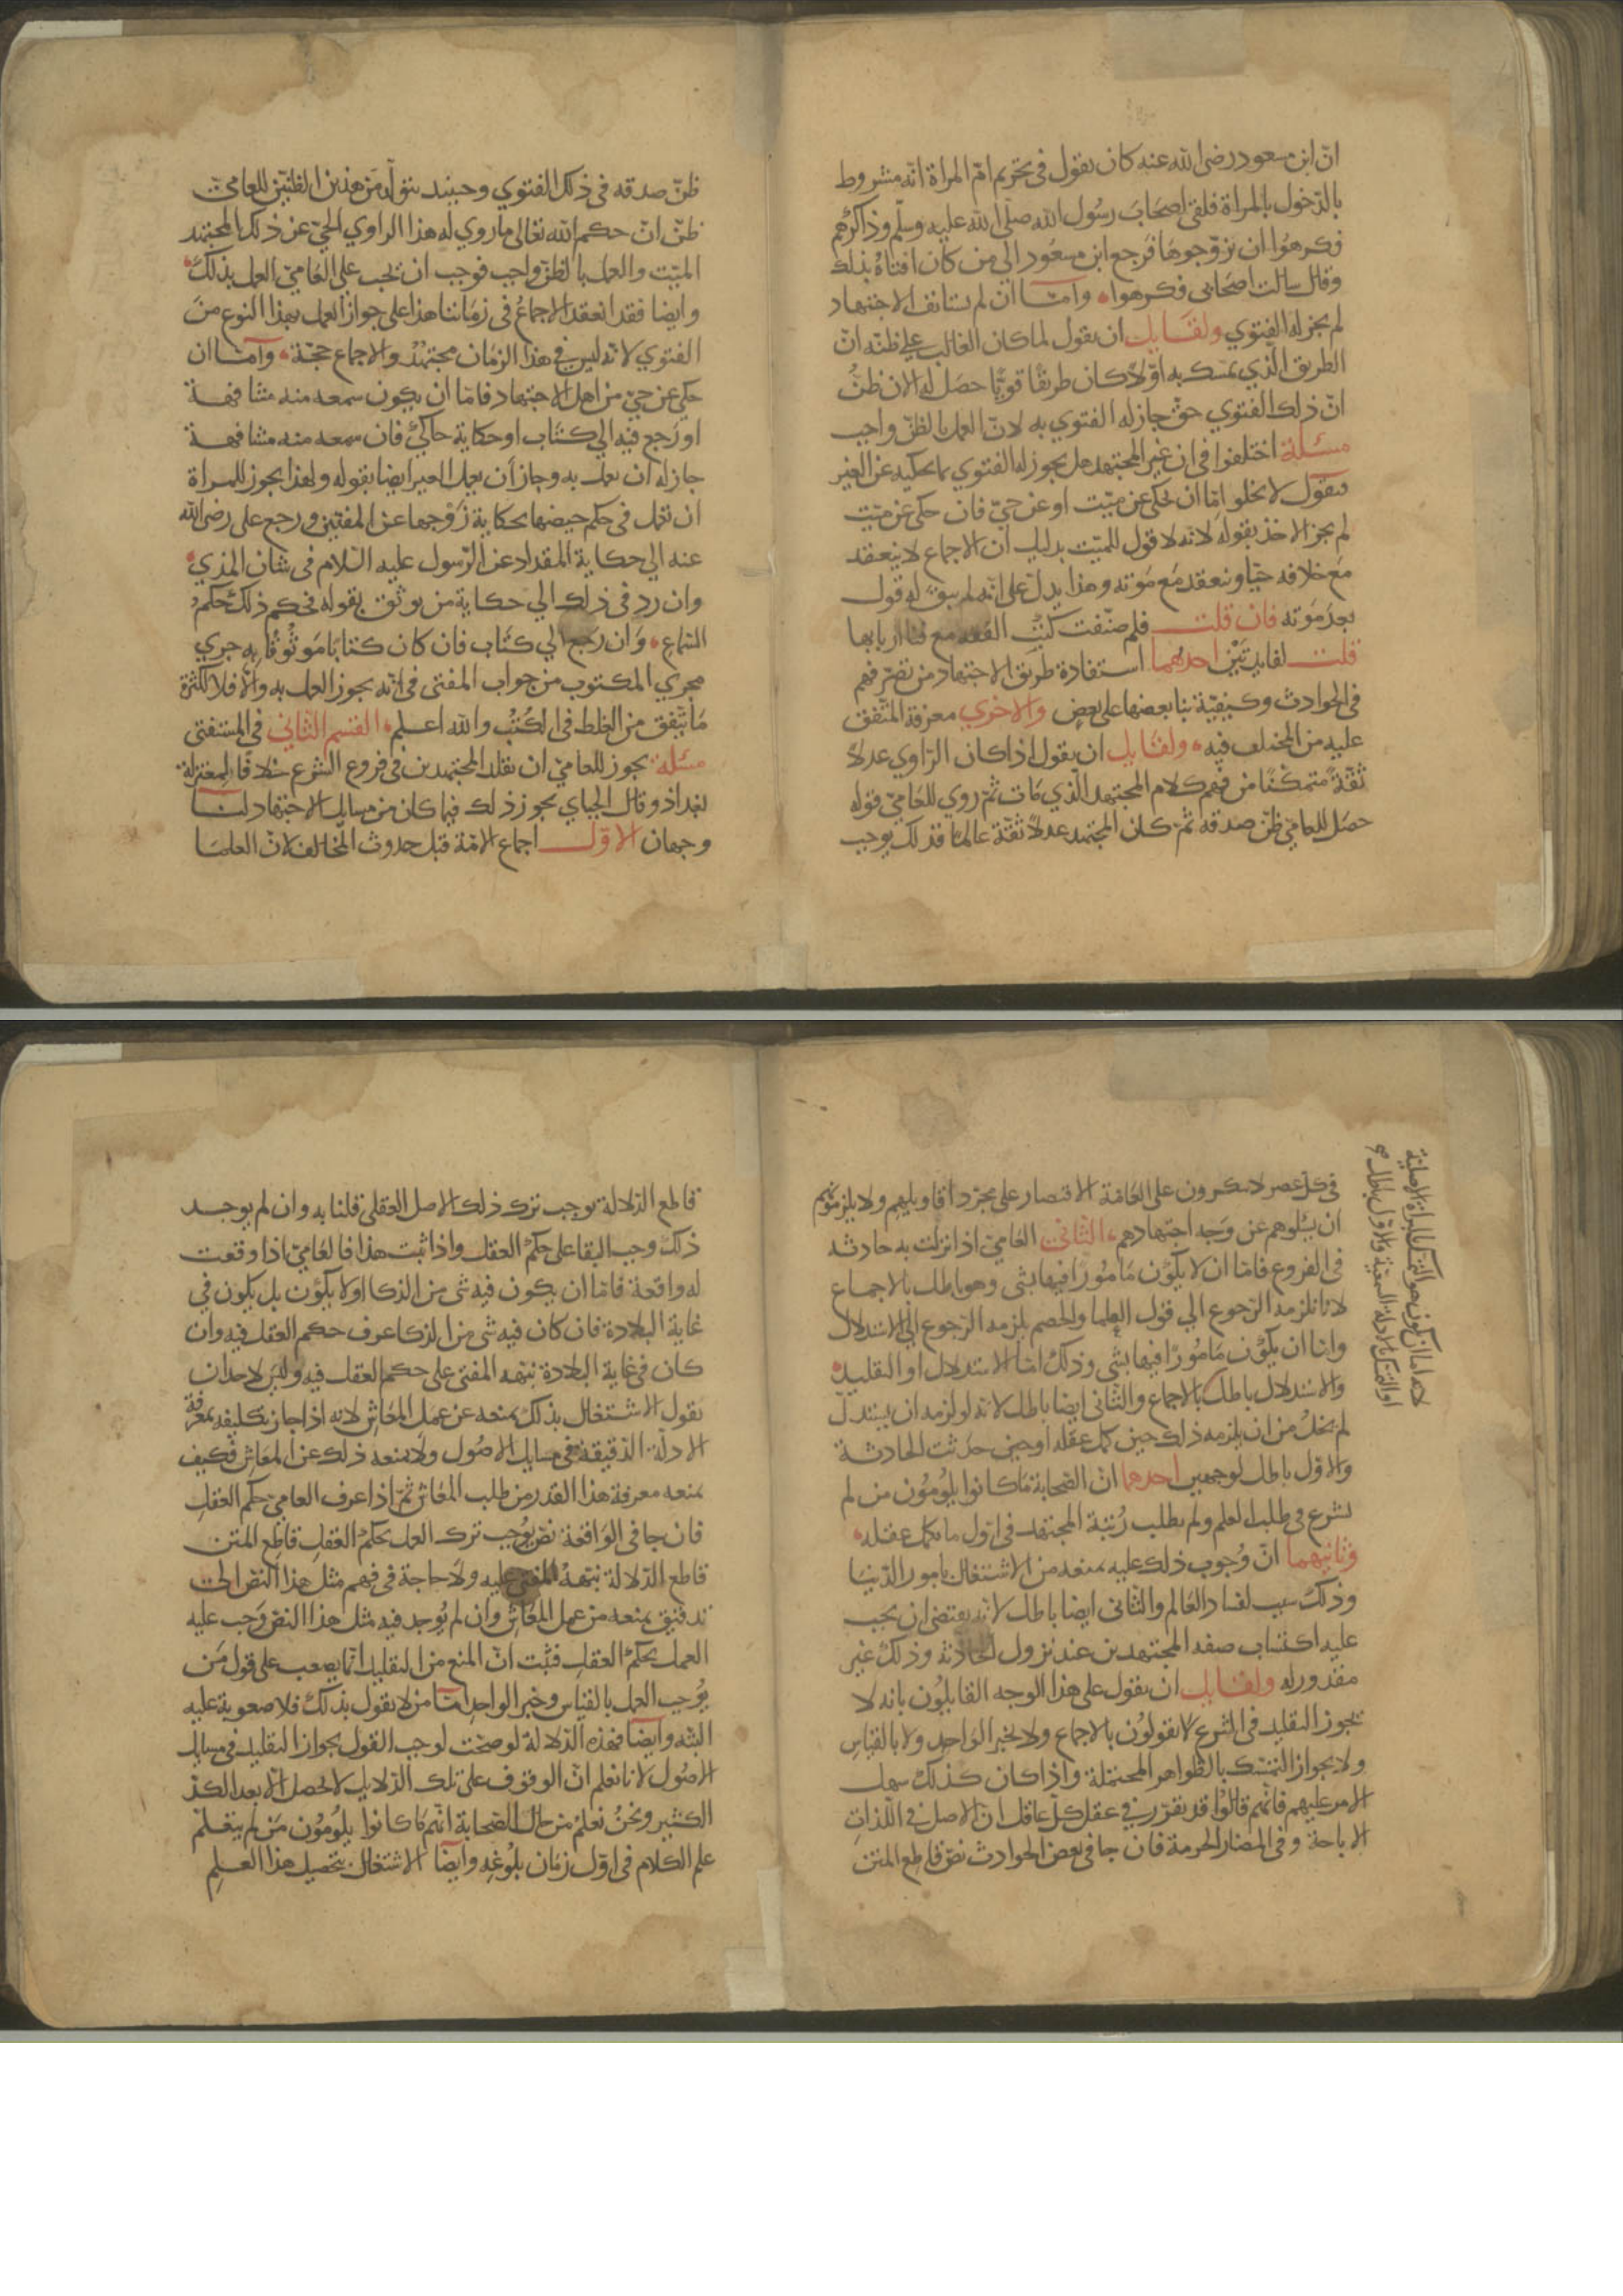 انّ ابن مسعود رضى الله عنه كان يقول فى تحريم امّ المراة انّه مشروط
بالدّخول بالمراة فلقى اصحَابَ رسُول الله صلّى الله عليه وسلّم وذاكرهم
فكرهوُا ان يزوّجوهَا فرَجع ابن مسعُود الى من كان افتاهُ بذلك
وقال سالت اصحَابى فكرهوا وامّا ان لم يستانف الاجتهاد
لم يجز له الفتوي ولقَايل ان يقول لما كان الغالب على ظنّه انّ
الطريق الّذي تمسّك به اوّلاً كان طريقًا قويًّا حصَل له الان ظنُّ
انّ ذلك الفتوي حقّ جاز له الفتوي به لانّ العمل بالظنّ واجب
مسئلة اختلفوا فى ان غير المجتهد هل يجوز له الفتوي بما يحكيه عن الغير
فنقول لا يخلو امّا ان يحكى عن ميّت او عن حىّ فان حكى عن ميّت
لم يجز الاخذ بقوله لانّه لا قول للميّت بدليل ان الاجماع لا ينعقد
مَع خلافه حيًّا وينعقد مَع مَوته وهذا يدلّ على انّه لم يبقَ له قول
بعد مَوته فان قلت فلم صنّفت كتُبُ الفقه مع فنا اربابها
قلت لفايدتَيْن احدهما استفادة طريق الاجتهاد من تصرّفهم
فى الحوادث وكيفيّة بنا بعضها على بعض والاخري معرفة المتّفق
عليه من المختلف فيه ولقَايل ان يقول اذا كان الرّاوي عدلاً
ثقةً متمكّنًا من فهم كلام المجتهد الّذي مَات ثمّ روي للعَامىّ قوله
حصَل للعامىّ ظنّ صدقه ثمّ كان المجتهد عدلاً ثقة عالمًا فذلك يوجب
ظنّ صدقه فى ذلك الفتوي وحينيد يتولّد من هذين الظنّيْن للعامىّ
ظنّ انّ حكم الله تعَالى ما روي له هذا الراوي الحىّ عن ذلك المجتهد
الميّت والعمل بالظنّ واجب فوجب ان يجب على العَامىّ العمل بذلك
وايضا فقد انعقد الاجماعُ فى زمَاننا هذا على جواز العمل بهذا النوع منَ
الفتوي لانّه ليس فى هذا الزمَان مجتهدٌ والاجماع حجّة وامّا ان
حكى عن حىّ من اهل الاجتهاد فامّا ان يكون سمعه منه مشافهة
او رَجع فيه الى كتاب او حكاية حاكىٍ فان سمعه منه مشافهة
جاز له ان يعمل به وجاز أن يعمل الغير ايضا بقوله ولهذا يجوز للمراة
ان تعمل فى حكم حيضها بحكاية زَوْجها عن المفتيّن ورجع على رضى الله
عنه الى حكاية المقداد عن الرّسول عليه السّلام فى شان المذي
وان رد فى ذلك الى حكاية من يوثق بقوله فحكم ذلك حكم
السّماع وَان رجَع الى كتَاب فان كان كتابًا مَوثوُقًا به جري
مجري المكتوب من جواب المفتى فى انّه يجوز العمل به وَالّا فلا لكثرة
مَا يتّفق من الغلط فى الكتُبُ والله اعلم القسم الثّانى فى المستفتى
مسئلة يجوز للعامىّ ان يقلّد المجتهدين فى فروع الشرع خلافًا لمعتزلة
بغداذ وقال الجباي يجوز ذلك فيما كان من مسايل الاجتهاد لنا
وجهان الاوّل اجماع الامّة قبل حدوث المخالف لانّ العلمَا
فى كل عصر لا ينكرون على العَامّة الاقتصار على مجرّد اقاويلهم ولا يلزمونهم
ان يسئلوهم عن وَجه اجتهادهم الثّانى العَامىّ اذا نزلت به حادثة
فى الفروع فامّا ان لا يكوُن مَامُورًا فيها بشى وهو باطل بالاجماع
لانا نلزمه الرّجوع الى قول العلما والخصم يلزمه الرّجوع الى الاستدلال
وامّا ان يكُون مَامُورًا فيها بشى وذلك امّا الاستدلال او التقليد
والاستدلال باطل بالاجماع والثّانى ايضا باطل لانّه لو لزمه ان يستدلّ
لم يخلُ من ان يلزمه ذلك حين كمل عقله او حين حدثت الحادثة
والاوّل باطل لوجهين احدهما انّ الصّحابة مَا كانوا يلُومُون من لم
يشرع فى طلب العلم ولم يطلب رُتبة المجتهد فى اوّل ما يكمل عقله
وثانيهما انّ وُجوب ذلك عليه يمنعه من الاشتغال بامور الدّنيَا
وذلك سبب لفساد العَالم والثّانى ايضا باطل لانّه يقتضى ان يجب
عليه اكتسَاب صفه المجتهدين عند نزول الحَادثه وذلك غير
مقدور له ولقَايل ان يقول على هذا الوجه القايلوُن بانه لا
يجوز التقليد فى الشرع لا يقولوُن بالاجماع ولا بخبر الوَاحد ولا بالقياسِ
ولا بجواز التمسّك بالظّواهر المحتملة واذا كان كذلك سهل
الامر عليهم فانّهم قالوُا قد تقرّر فى عقل كلّ عاقل انّ الاصل فى اللّذاتِ
الاباحة وفى المضار الحرمة فان جا فى بعض الحوادث نصّ قاطع المتن
لانه اما ان يكون هو التمسك بالبراة الاصلية
او التمسك بالادلة السمعية والاول باطل
قاطع الدّلالة يوجب ترك ذلك الاصل العقلى قلنا به وان لم يوجد
ذلك وجب البقا على حكم العقل واذا ثبت هذا فالعَامىّ اذا وقعت
له واقعة فامّا ان يكون فيه شى من الذكا اولا يكُون بل يكون فى
غاية البلادة فان كان فيه شى من الذكا عرف حكم العقل فيه وان
كان فى غاية البلادة نبّهه المفتى على حكم العقل فيه وليسَ لاحد ان
يقول الاشتغال بذلك يمنعه عن عمل المعَاش لانه اذا جاز تكليفه بمعرفة
الادلّة الدّقيقة فى مسايل الاصُول ولا يمنعه ذلك عن المعَاش فكيف
يمنعه معرفة هذا القدر من طلب المعَاش ثمّ اذا عرف العامىّ حكم العقلِ
فان جا فى الوَاقعة نصّ يوُجب ترك العمل بحكم العقلِ قاطع المتن
قاطع الدّلالة نبّههُ المفتى عليه ولا حاجة فى فهم مثل هذا النّص الى
تدقيق يمنعه من عمل المعَاش وان لم يُوجد فيه مثل هذا النصّ وَجب عليه
العمل بحكم العقلِ فثبت انّ المنع من التقليد انّما يصعب على قول مَن
يوُجب العمل بالقيَاس وخبر الواحد امّا من لا يقول بذلك فلا صعوبة عليه
البتّه وايضا فهذه الدّلالة لو صحّت لوجب القول بجواز التقليد فى مسايل
الاصُول لانا نعلم انّ الوقوف على تلك الدّلايل لا يحصل الّا بعد الكدّ
الكثير ونحنُ نعلم من حال الصّحابة انّهم مَا كانوا يلُومُون مَن لم يتعَلّم
علم الكلام فى اوّل زمَان بلُوغه وايضا الاشتغال بتحصيل هذا العلمِ